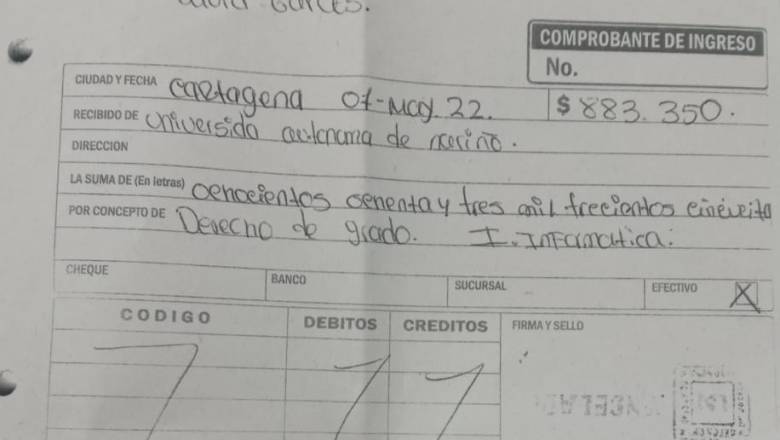 COMPROBANTE DE INGRESO
No.
CIUDAD Y FECHA Cartagena 07-May. 22. $ 883.350.
RECIBIDO DE Universida autonoma de nariño.
DIRECCION
LA SUMA DE (En letras) ochocientos ochenta y tres mil trecientos
POR CONCEPTO DE Derecho de grado. I. Informatica.
CHEQUE BANCO SUCURSAL EFECTIVO X
CODIGO DEBITOS CREDITOS FIRMA Y SELLO